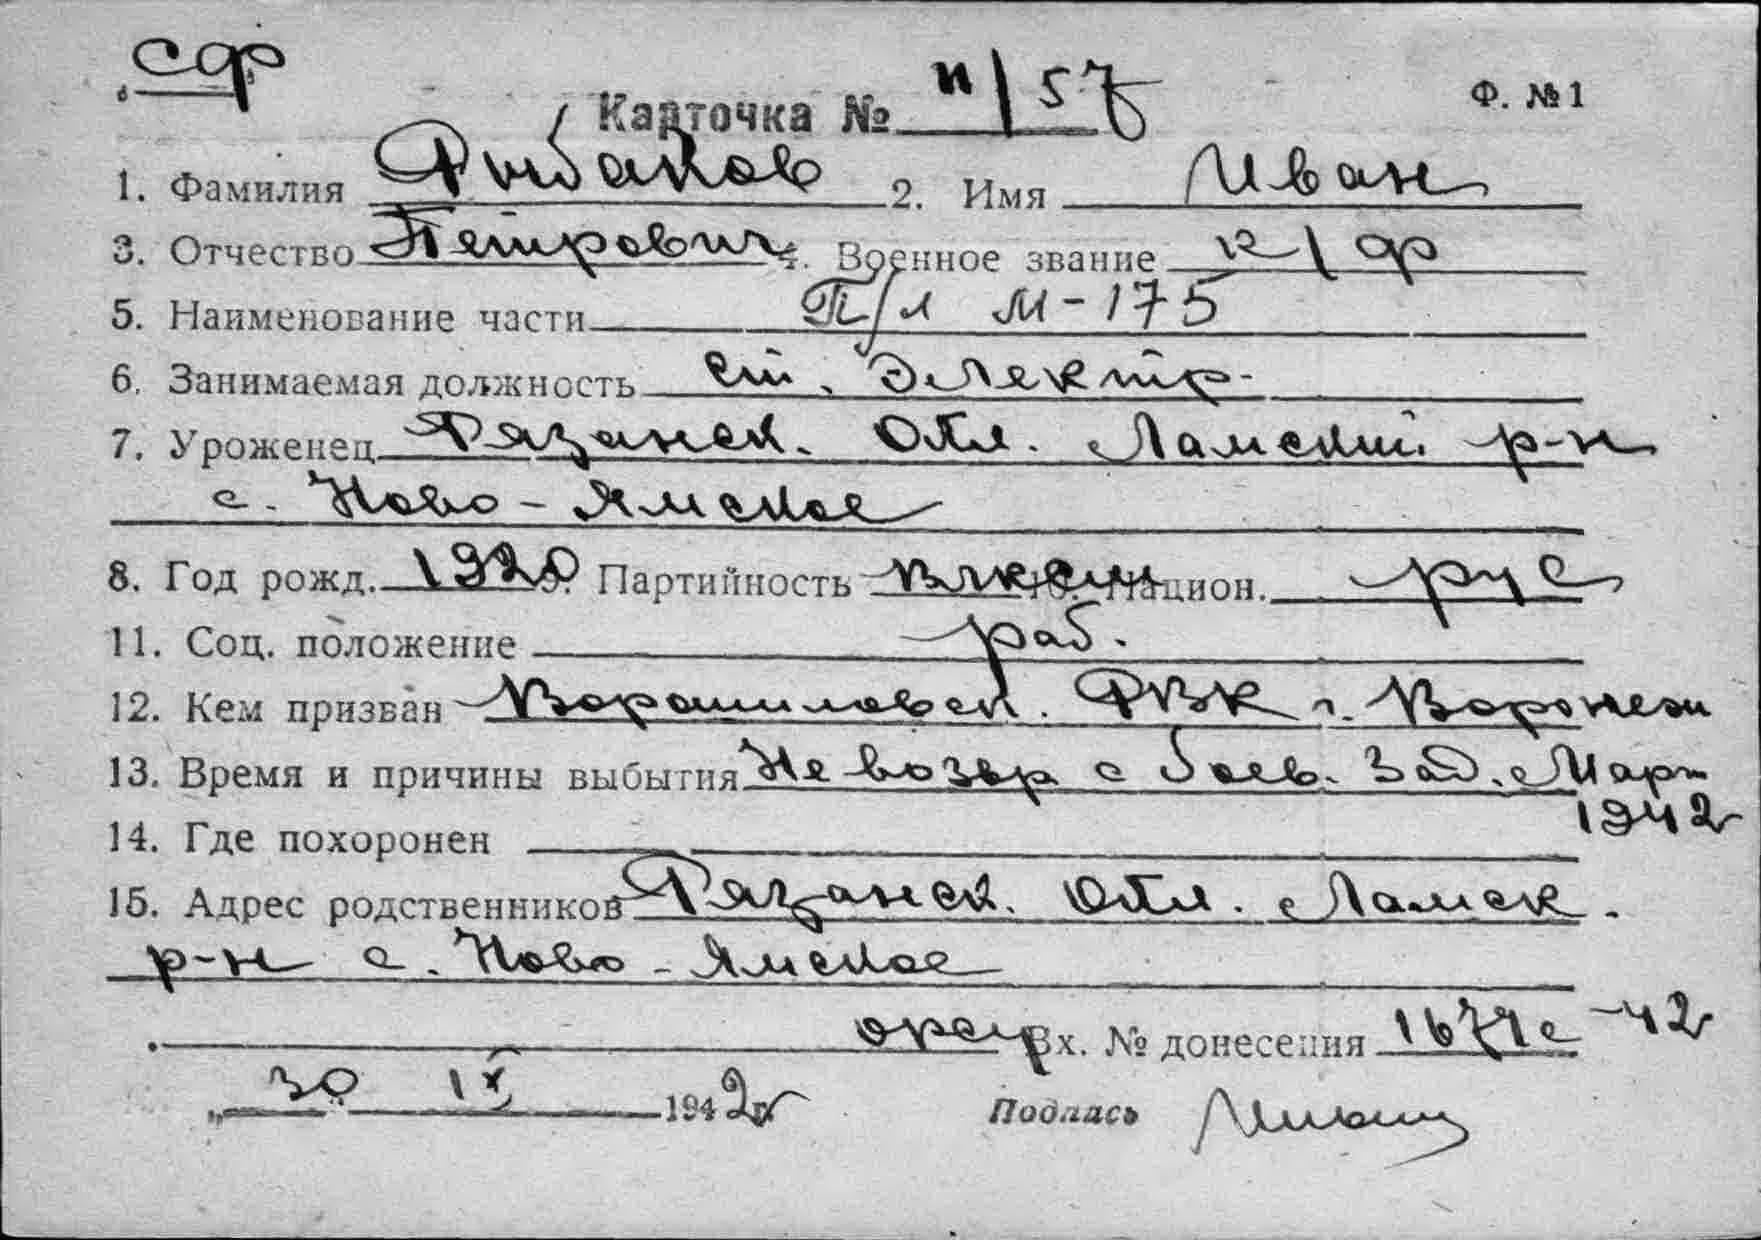 сф
Карточка № п/57 Ф. №1
1. Фамилия Рыбаков 2. Имя Иван
3. Отчество Петрович 4. Военное звание к/ф
5. Наименование части П/л М-175
6. Занимаемая должность Ст. Электр.
7. Уроженец Рязанск. Обл. Ламский р-н
с. Ново-Ямское
8. Год рожд. 1920 9. Партийность ВЛКСМ 10. Национ. рус
11. Соц. положение раб.
12. Кем призван Ворошиловск. РВК г. Воронеж
13. Время и причины выбытия Не возвр с боев. Зад. Март
1942
14. Где похоронен
15. Адрес родственников Рязанск. Обл. Ламск.
р-н с. Ново-Ямское
Вх. № донесения 1677с -42
„30 IX 1942 г Подпись